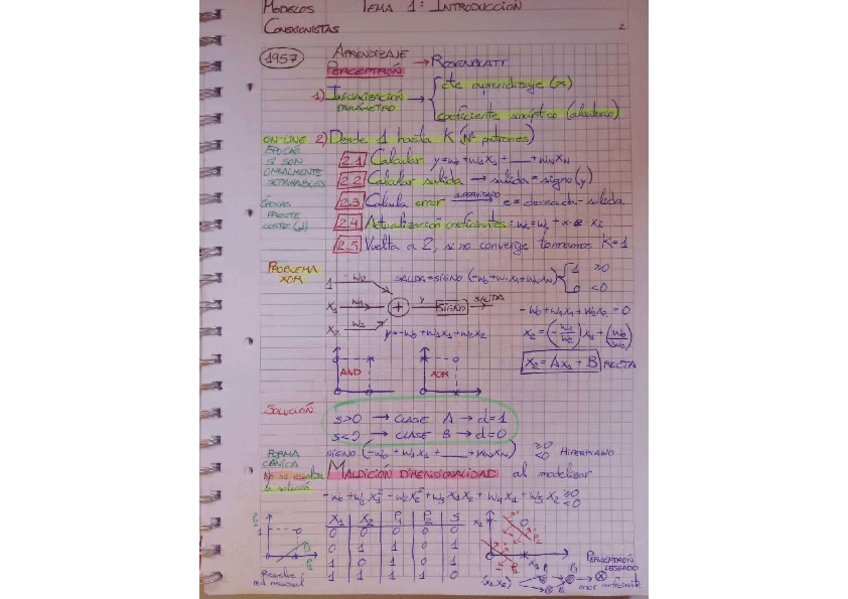 MODELOS TEMA 1: INTRODUCCIÓN
CONEXIONISTAS 2
1957 APRENDIZAJE
PERCEPTRÓN → ROSENBLATT
1) INICIALIZACIÓN PARÁMETRO → cte aprendizaje (α)
coeficiente sináptico (aleatorio)
ON-LINE 2) Desde 1 hasta K (Nº patrones)
ÉPOCAS
SI SON
LINEALMENTE
SEPARABLES
2.1 Calcular y=w0+w1x1+__+wNxN
2.2 Calcular salida → salida = signo(y)
2.3 Calcula error → e = deseada - salida
ÉPOCAS
FRENTE
COSTE (J)
2.4 Actualización coeficientes: wi=wi + α·e· xi
2.5 Vuelta a 2, si no converge tomamos K=1
PROBLEMA
XOR
1 w0
SALIDA=SIGNO (-w0+w1x1+wNxN) 1 ≥0
0 <0
x1 w1 + y SIGNO SALIDA
x2 w2
y=-w0+w1x1+w2x2
-w0+w1x1+w2x2=0
x2=(-w1/w2)x1+(w0/w2)
x2=Ax1+B RECTA
AND XOR
SOLUCIÓN
s>0 → CLASE A → d=1
s<0 → CLASE B → d=0
FORMA
CÁNICA
SIGNO (-w0+w1x1+__+wNxN) ≥0
<0 HIPERPLANO
No se escala
la solución
MALDICIÓN DIMENSIONALIDAD al modelizar
-w0+w1x1²+w2x2²+w3x1x2+w4x1+w5x2 ≥0
<0
x1 x2 P1 P2 S
0 0 0 0 0
0 1 1 0 1
1 0 1 0 1
1 1 1 1 0
Resuelve
red neuronal
PERCEPTRÓN
(x1,x2)